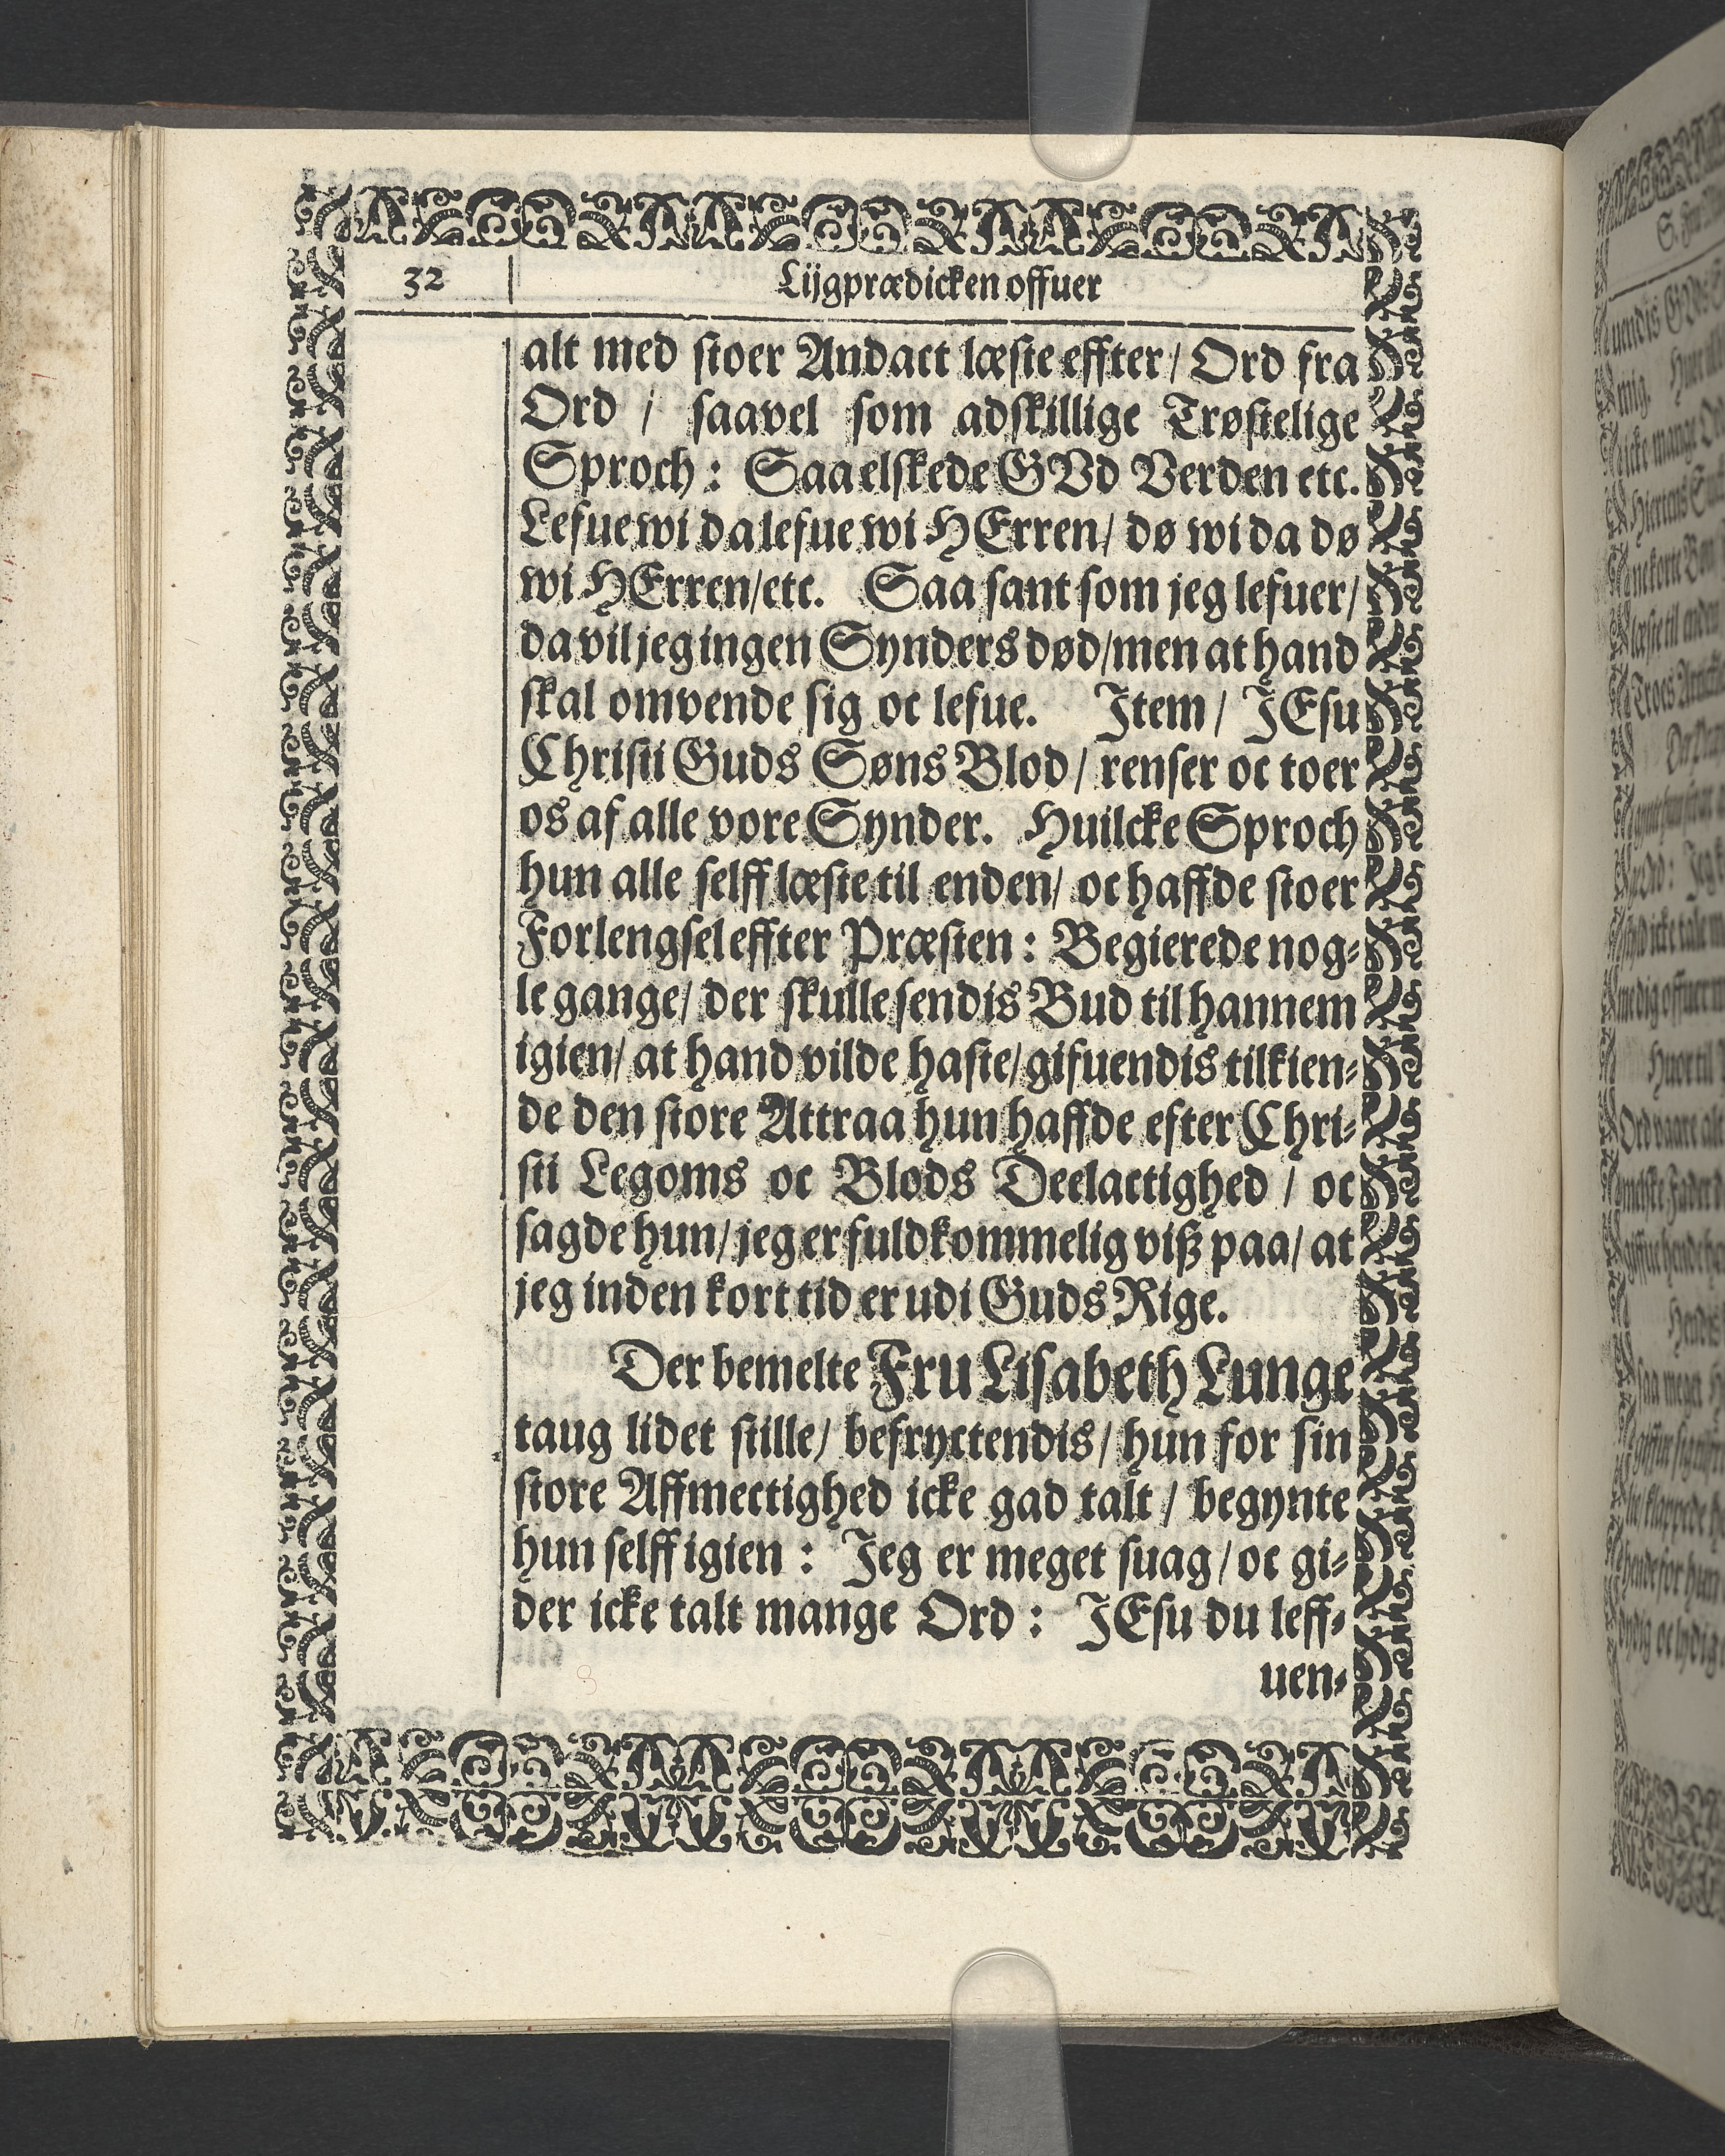 32
Lijgprædicken offuer
alt med stoer Andact læste effter / Ord fra
Ord / saavel som adskillige Trøstelige
Sproch : Saa elskede GVd Verden etc.
Lefue wi da lefue wi HErren / dø wi da dø
wi HErren / etc. Saa sant som jeg lefuer /
da vil jeg ingen Synders død / men at hand
skal omvende sig oc lefue. Item / JEsu
Christi Guds Søns Blod / renser oc toer
os af alle vore Synder. Huilcke Sproch
hun alle selff læste til enden / oc haffde stoer
Forlengsel effter Præsten : Begierede nog-
le gange / der skulle sendis Bud til hannem
igien / at hand vilde haste / gifuendis tilkien-
de den store Attraa hun haffde efter Chri-
sti Legoms oc Blods Deelactighed / oc
sagde hun / jeg er fuldkommelig viß paa / at
jeg inden kort tid er udi Guds Rige.
Der bemelte Fru Lisabeth Lunge
taug lidet stille / befryctendis / hun for sin
store Affmectighed icke gad talt / begynte
hun selff igien : Jeg er meget suag / oc gi-
der icke talt mange Ord : JEsu du leff-
uen-